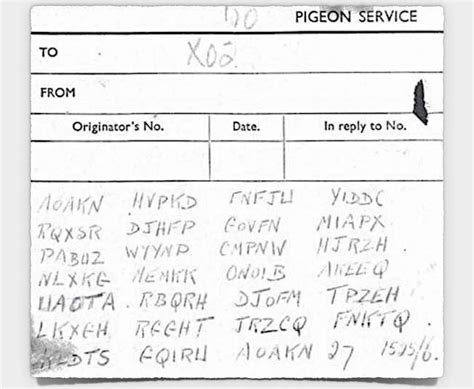 DO PIGEON SERVICE
TO X02
FROM
Originator's No. Date. In reply to No.
AOAKN HVPKD FNFJU YIDDC
RQXSR DJHFP GOVFN MIAPX
PABUZ WYYNP CMPNW HJRZH
NLXKG MEMKK ONOIB AKEEQ
UAOTA RBQRH DJOFM TPZEH
LKXGH RGGHT JRZCQ FNKTQ
KLDTS GQIRU AOAKN 27 1525/6.